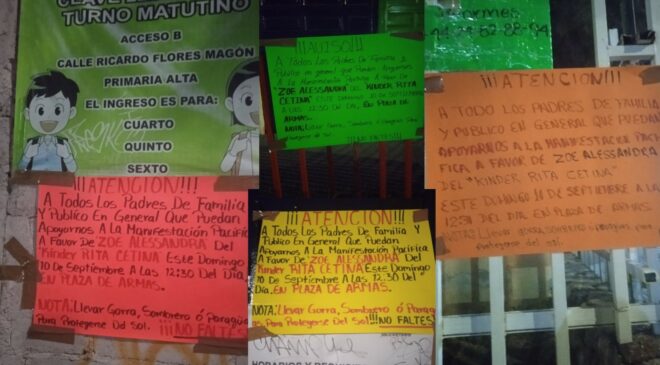 TURNO MATUTINO
ACCESO B
CALLE RICARDO FLORES MAGÓN
PRIMARIA ALTA
EL INGRESO ES PARA:
CUARTO
QUINTO
SEXTO
¡¡AVISO!!
A Todos Los Padres De Familia y
Público en general que
A La Manifestación
"ZOE ALESSANDRA" DEL "KINDER RITA
CETINA" ESTE DOMINGO 10 DE SEPTIEMBRE
A LAS 12:30 DEL DIA, EN PLAZA DE
ARMAS.
NOTA: Llevar Gorra, Sombrero ó
Del Sol.
¡¡¡ATENCION!!!
A TODO LOS PADRES DE FAMILIA
Y PUBLICO EN GENERAL QUE PUEDAN
APOYARNOS A LA MANIFESTACION PACI
FICA A FAVOR DE ZOE ALESSANDRA
DEL "KINDER RITA CETINA"
ESTE DOMINGO 10 DE SEPTIEMBRE A LA
DEL DIA EN PLAZA DE ARMAS.
NOTA: LLEVAR
protegerse del sol.
¡¡¡ATENCION!!!
A Todos Los Padres De Familia
Y Público En General Que Puedan
Apoyarnos A La Manifestación Pacífica
A Favor De ZOE ALESSANDRA Del
Kinder RITA CETINA Este Domingo
10 De Septiembre A Las 12:30 Del Día
EN PLAZA DE ARMAS.
NOTA: Llevar Gorra, Sombrero ó Paragüas
Para Protegerse Del Sol. ¡¡¡NO FALTES
¡¡¡ATENCION!!!
A Todos Los Padres De Familia Y
Público En General Que Puedan
Apoyarnos A La Manifestación Pacífica
A Favor De ZOE ALESSANDRA Del
Kinder RITA CETINA Este Domingo
10 De Septiembre A Las 12:30 Del
Día. EN PLAZA DE ARMAS.
NOTA: Llevar Gorra, Sombrero ó Paragu
as Para Protegerse Del Sol!!! NO FALTES